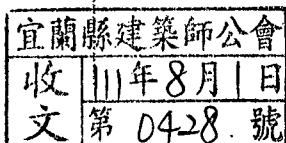 宜蘭縣建築師公會
收文
111年8月1日
第 0428 號